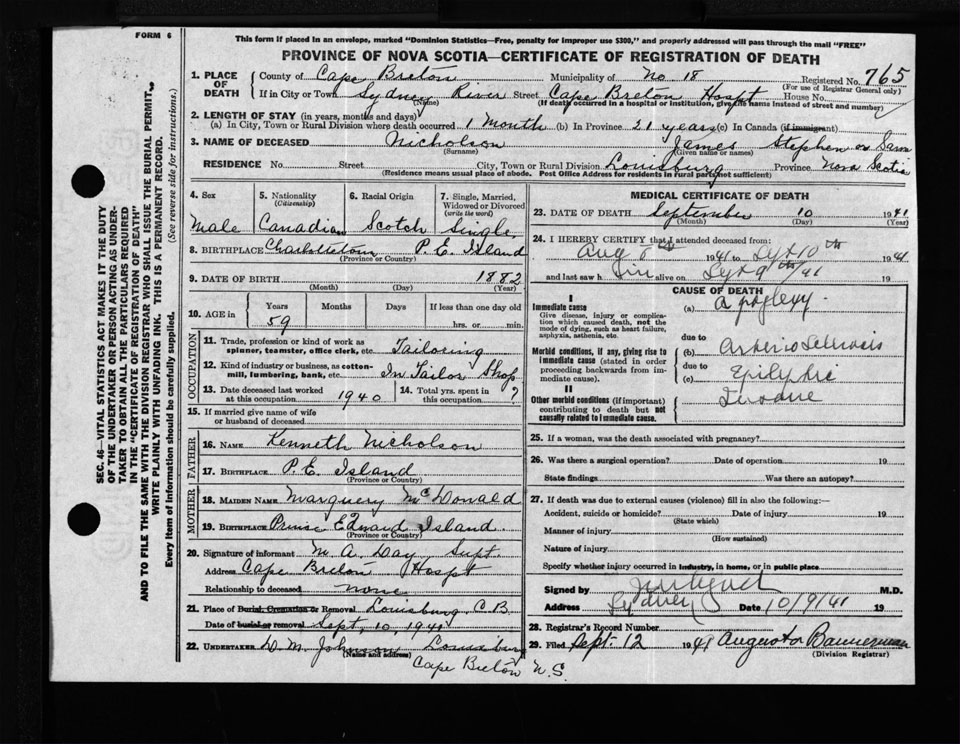 FORM 6
This form if placed in an envelope, marked "Dominion Statistics—Free, penalty for improper use $300," and properly addressed will pass through the mail "FREE"
PROVINCE OF NOVA SCOTIA—CERTIFICATE OF REGISTRATION OF DEATH
1. PLACE OF DEATH
County of Cape Breton Municipality of No 18 Registered No. 765
(For use of Registrar General only)
If in City or Town Sydney River Street Cape Breton Hospt House No.
(Name) (If death occurred in a hospital or institution, give the name instead of street and number)
2. LENGTH OF STAY (in years, months and days)
(a) In City, Town or Rural Division where death occurred 1 Month (b) In Province 21 years (c) In Canada (if immigrant)
3. NAME OF DECEASED Nicholson James Stephen or Sam
(Surname) (Given name or names)
RESIDENCE No. Street City, Town or Rural Division Louisburg Province Nova Scotia
(Residence means usual place of abode. Post Office Address for residents in rural parts not sufficient)
4. Sex
Male
5. Nationality
(Citizenship)
Canadian
6. Racial Origin
Scotch
7. Single, Married, Widowed or Divorced
(write the word)
Single
8. BIRTHPLACE Charlottetown P. E. Island
(Province or Country)
9. DATE OF BIRTH 1882
(Month) (Day) (Year)
10. AGE in Years Months Days If less than one day old
59 hrs. or min.
OCCUPATION
11. Trade, profession or kind of work as spinner, teamster, office clerk, etc. Tailoring
12. Kind of industry or business, as cotton-mill, lumbering, bank, etc. In Tailor Shop
13. Date deceased last worked at this occupation 1940
14. Total yrs. spent in this occupation ?
15. If married give name of wife or husband of deceased
FATHER
16. NAME Kenneth Nicholson
17. BIRTHPLACE P. E. Island
(Province or Country)
MOTHER
18. MAIDEN NAME Marguery McDonald
19. BIRTHPLACE Prince Edward Island
(Province or Country)
20. Signature of informant M. A. Day, Supt.
Address Cape Breton Hospt
Relationship to deceased none
21. Place of Burial, Cremation or Removal Louisburg C.B.
Date of burial or removal Sept, 10, 1941
22. UNDERTAKER D. M. Johnson Louisburg
(Name and address)
Cape Breton N.S.
MEDICAL CERTIFICATE OF DEATH
23. DATE OF DEATH September 10 1941
(Month) (Day) (Year)
24. I HEREBY CERTIFY that I attended deceased from:
Aug 8th 1941 to Sept 10th 1941
and last saw him alive on Sept 9th/41 19
CAUSE OF DEATH
I
Immediate cause
Give disease, injury or complication which caused death, not the mode of dying, such as heart failure, asphyxia, asthenia, etc.
(a) Apoplexy
due to
Morbid conditions, if any, giving rise to immediate cause (stated in order proceeding backwards from immediate cause).
(b) Arterio Sclerosis
due to
(c) Epileptic
II
Other morbid conditions (if important) contributing to death but not causally related to immediate cause.
25. If a woman, was the death associated with pregnancy?
26. Was there a surgical operation? Date of operation 19
State findings Was there an autopsy?
27. If death was due to external causes (violence) fill in also the following:—
Accident, suicide or homicide? Date of injury 19
(State which)
Manner of injury
(How sustained)
Nature of injury
Specify whether injury occurred in industry, in home, or in public place
Signed by M.D.
Address Sydney Date 10/9/41 19
28. Registrar's Record Number
29. Filed Sept-12 1941 Augusta Bannerman
(Division Registrar)
SEC. 46—VITAL STATISTICS ACT MAKES IT THE DUTY OF THE UNDERTAKER OR PERSON ACTING AS UNDERTAKER TO OBTAIN ALL THE PARTICULARS REQUIRED IN THE "CERTIFICATE OF REGISTRATION OF DEATH" AND TO FILE THE SAME WITH THE DIVISION REGISTRAR WHO SHALL ISSUE THE BURIAL PERMIT.
WRITE PLAINLY WITH UNFADING INK. THIS IS A PERMANENT RECORD.
Every item of Information should be carefully supplied. (See reverse side for instructions.)